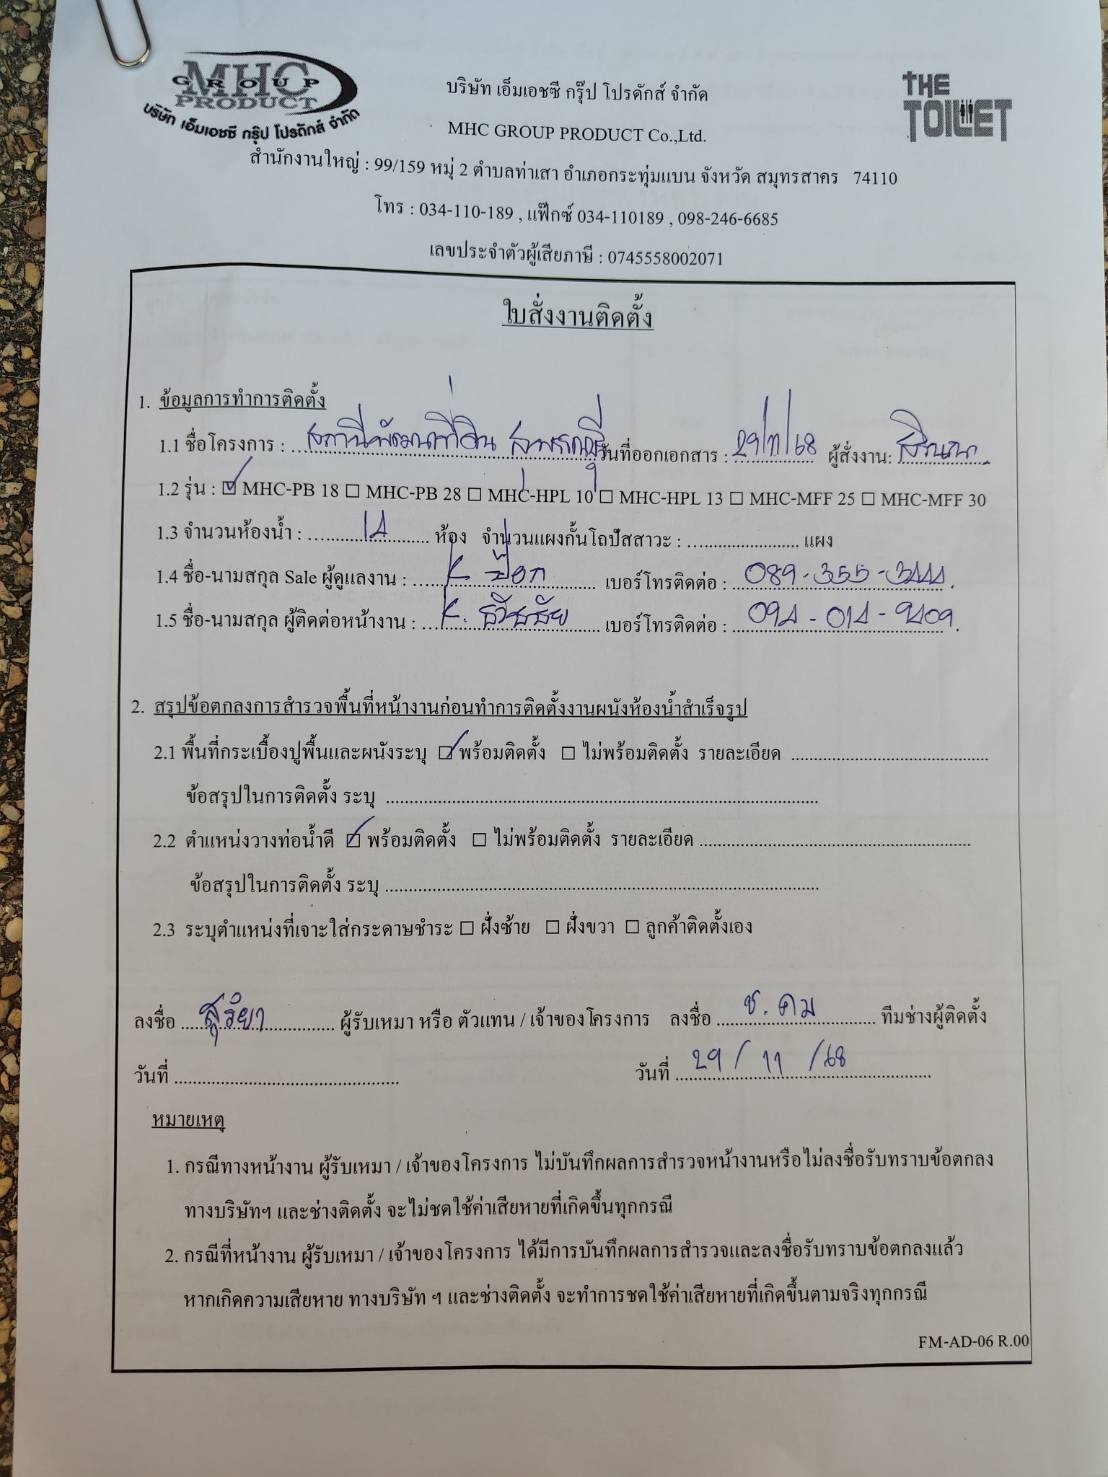 MHC
GROUP
PRODUCT
บริษัท เอ็มเอชซี กรุ๊ป โปรดักส์ จำกัด
THE
TOILET
บริษัท เอ็มเอชซี กรุ๊ป โปรดักส์ จำกัด
MHC GROUP PRODUCT Co.,Ltd.
สำนักงานใหญ่ : 99/159 หมู่ 2 ตำบลท่าเสา อำเภอกระทุ่มแบน จังหวัด สมุทรสาคร 74110
โทร : 034-110-189 , แฟ๊กซ์ 034-110189 , 098-246-6685
เลขประจำตัวผู้เสียภาษี : 0745558002071
ใบสั่งงานติดตั้ง
1. ข้อมูลการทำการติดตั้ง
1.1 ชื่อโครงการ : สถานีพัฒนาที่ดิน สุพรรณบุรี วันที่ออกเอกสาร : 29/11/68 ผู้สั่งงาน:
1.2 รุ่น : ☑ MHC-PB 18 ☐ MHC-PB 28 ☐ MHC-HPL 10 ☐ MHC-HPL 13 ☐ MHC-MFF 25 ☐ MHC-MFF 30
1.3 จำนวนห้องน้ำ : 14 ห้อง จำนวนแผงกั้นโถปัสสาวะ : แผง
1.4 ชื่อ-นามสกุล Sale ผู้ดูแลงาน : K ป๊อก เบอร์โทรติดต่อ : 089-355-3444.
1.5 ชื่อ-นามสกุล ผู้ติดต่อหน้างาน : K. ธวัชชัย เบอร์โทรติดต่อ : 094-014-9409.
2. สรุปข้อตกลงการสำรวจพื้นที่หน้างานก่อนทำการติดตั้งงานผนังห้องน้ำสำเร็จรูป
2.1 พื้นที่กระเบื้องปูพื้นและผนังระบุ ☑ พร้อมติดตั้ง ☐ ไม่พร้อมติดตั้ง รายละเอียด
ข้อสรุปในการติดตั้ง ระบุ
2.2 ตำแหน่งวางท่อน้ำดี ☑ พร้อมติดตั้ง ☐ ไม่พร้อมติดตั้ง รายละเอียด
ข้อสรุปในการติดตั้ง ระบุ
2.3 ระบุตำแหน่งที่เจาะใส่กระดาษชำระ ☐ ฝั่งซ้าย ☐ ฝั่งขวา ☐ ลูกค้าติดตั้งเอง
ลงชื่อ สุริยา ผู้รับเหมา หรือ ตัวแทน / เจ้าของโครงการ ลงชื่อ ช. คม ทีมช่างผู้ติดตั้ง
วันที่ วันที่ 29 / 11 /68
หมายเหตุ
1. กรณีทางหน้างาน ผู้รับเหมา / เจ้าของโครงการ ไม่บันทึกผลการสำรวจหน้างานหรือไม่ลงชื่อรับทราบข้อตกลง
ทางบริษัทฯ และช่างติดตั้ง จะไม่ชดใช้ค่าเสียหายที่เกิดขึ้นทุกกรณี
2. กรณีที่หน้างาน ผู้รับเหมา / เจ้าของโครงการ ได้มีการบันทึกผลการสำรวจและลงชื่อรับทราบข้อตกลงแล้ว
หากเกิดความเสียหาย ทางบริษัท ฯ และช่างติดตั้ง จะทำการชดใช้ค่าเสียหายที่เกิดขึ้นตามจริงทุกกรณี
FM-AD-06 R.00